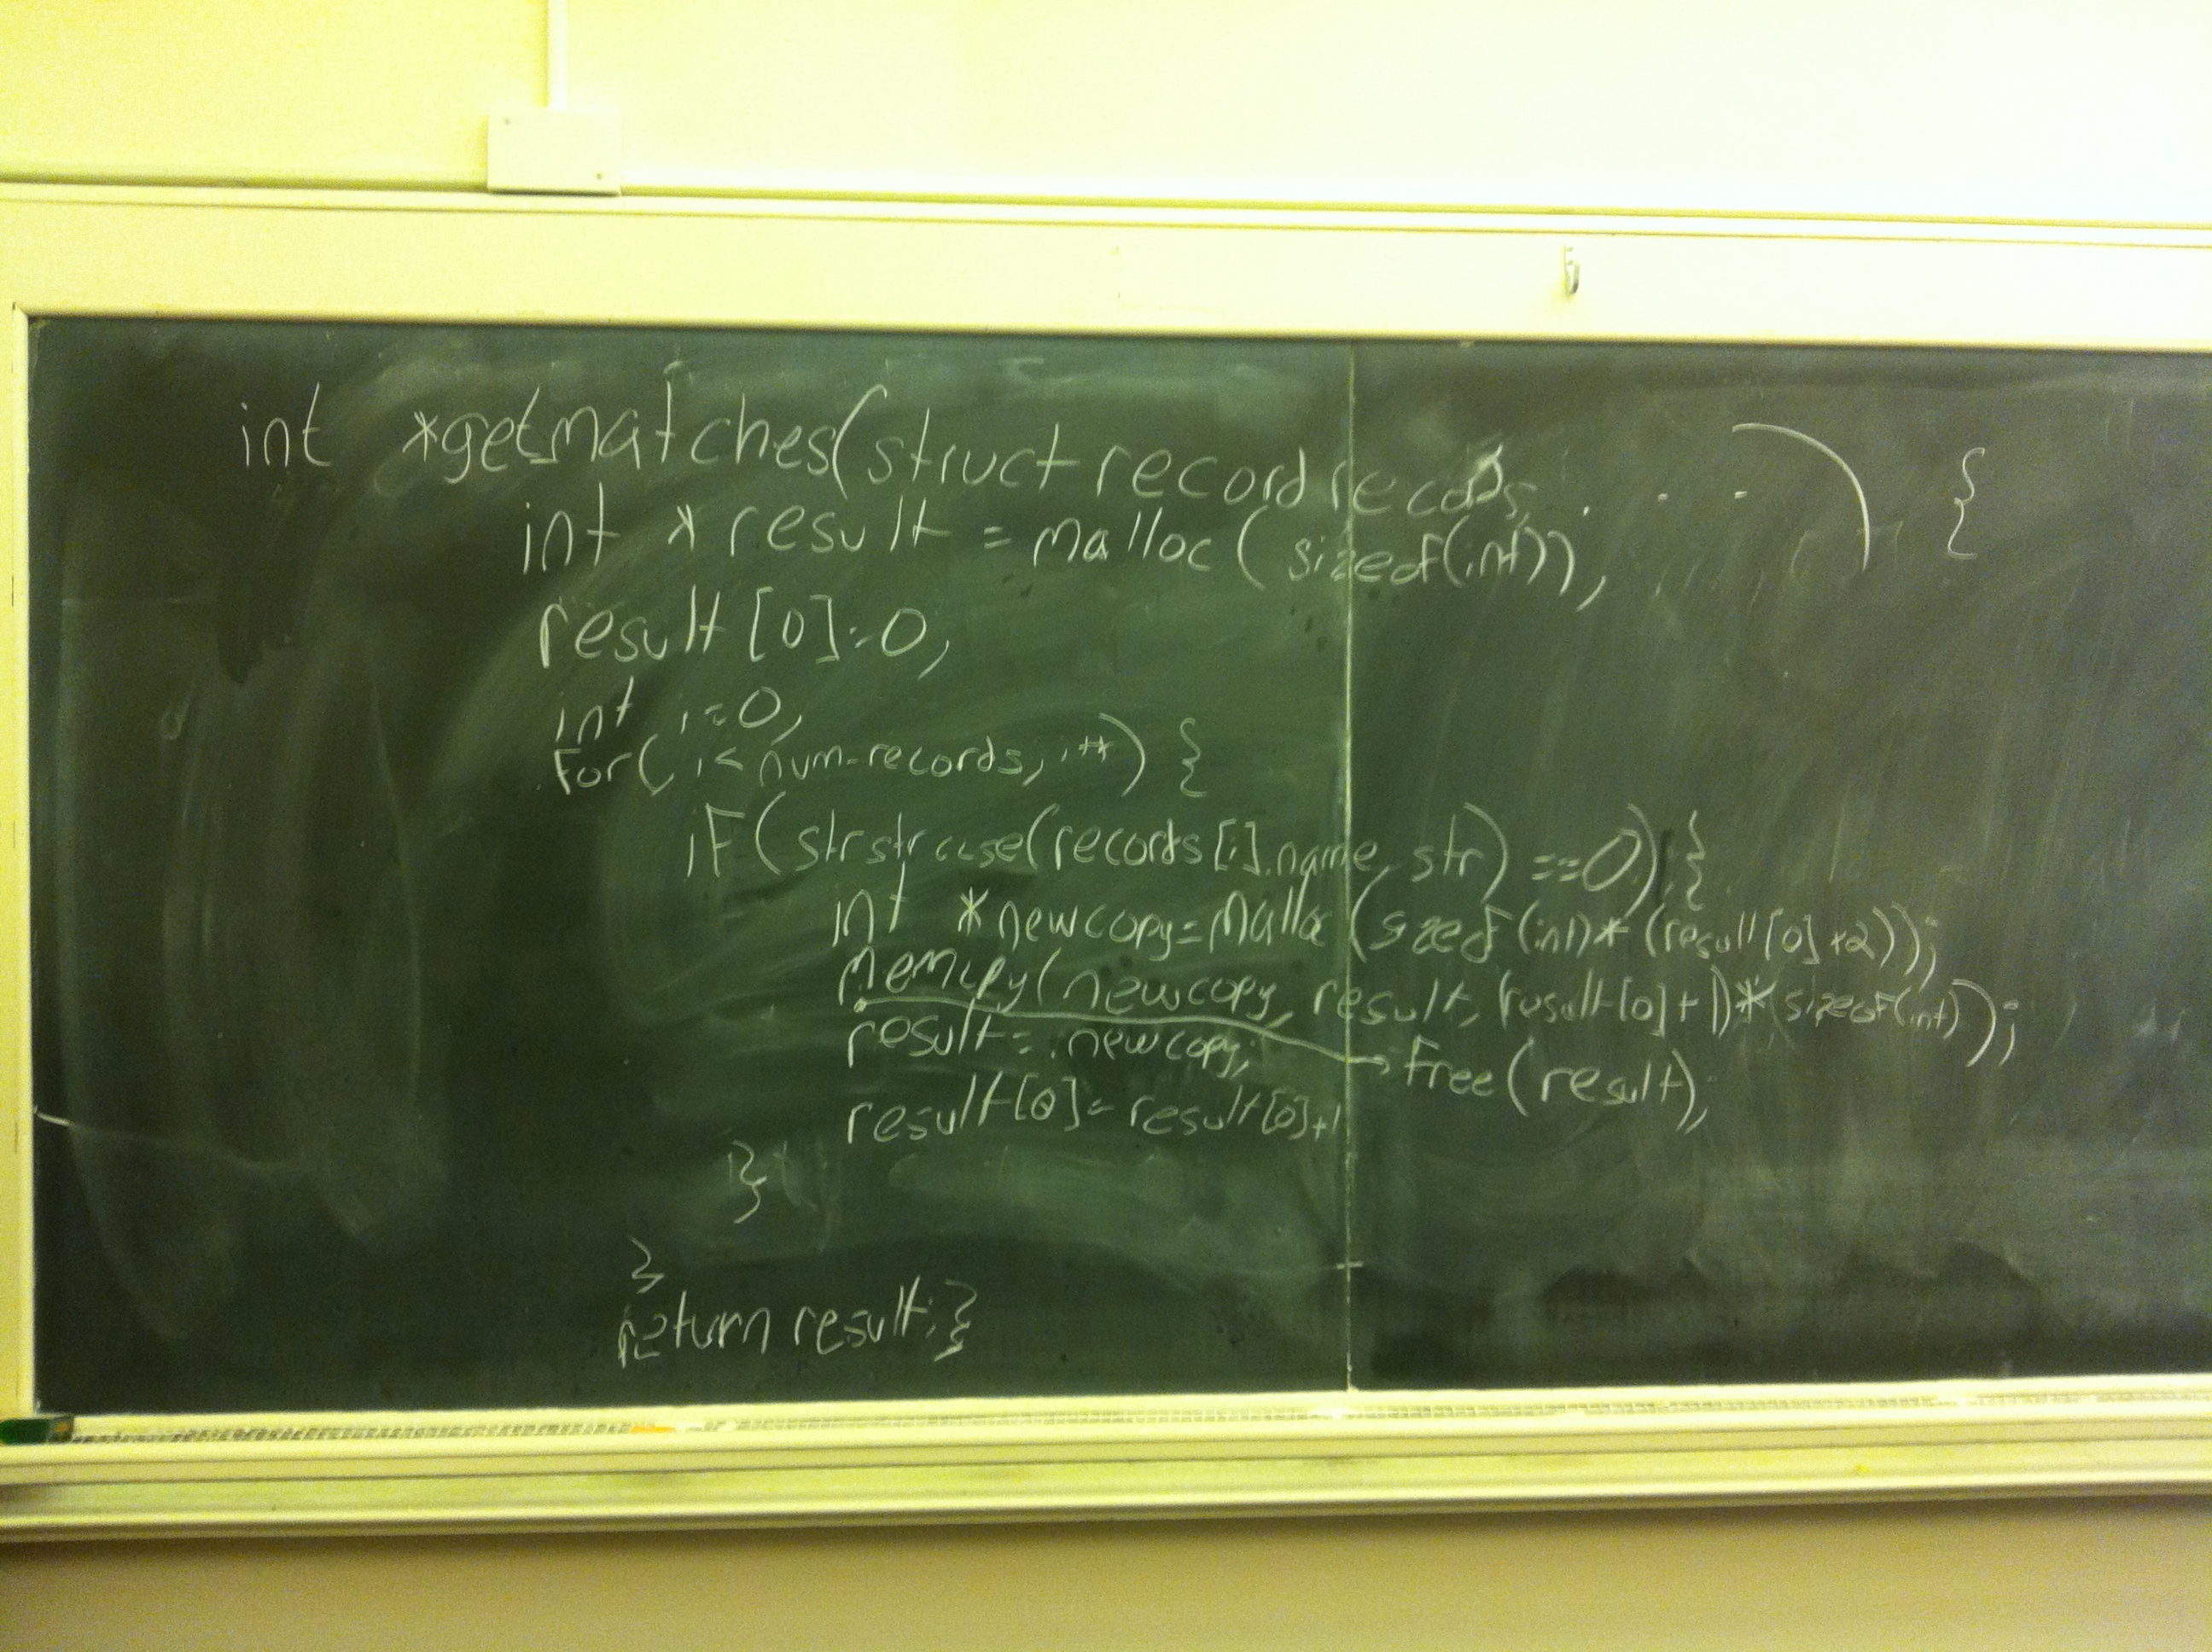 int *getmatches(struct record records, . . . ) {
int *result = malloc( sizeof(int));
result[0]=0;
int i=0;
for(; i< num-records; i++) {
if(strstrcase(records[i].name, str) ==0) {
int *newcopy=malloc(sizeof(int)*(result[0]+2));
memcpy(newcopy, result, (result[0]+1)*(sizeof(int));
result= newcopy;
free(result);
result[0]=result[0]+1
}
}
return result; }